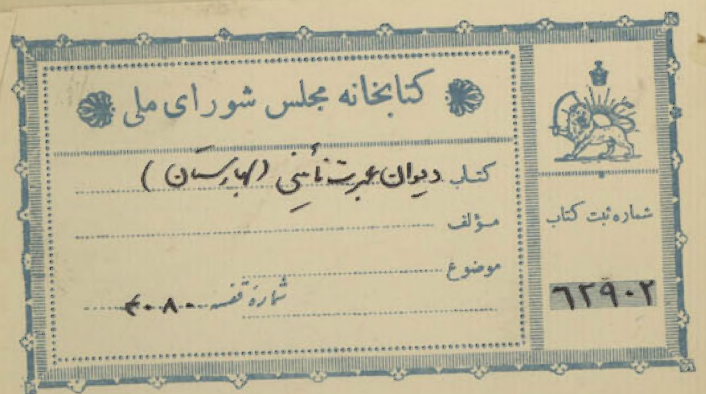 کتابخانه مجلس شورای ملی
کتاب دیوان عبرت نائینی (بهارستان)
مؤلف
موضوع
شماره قفسه
شماره ثبت کتاب
۶۲۹۰۲